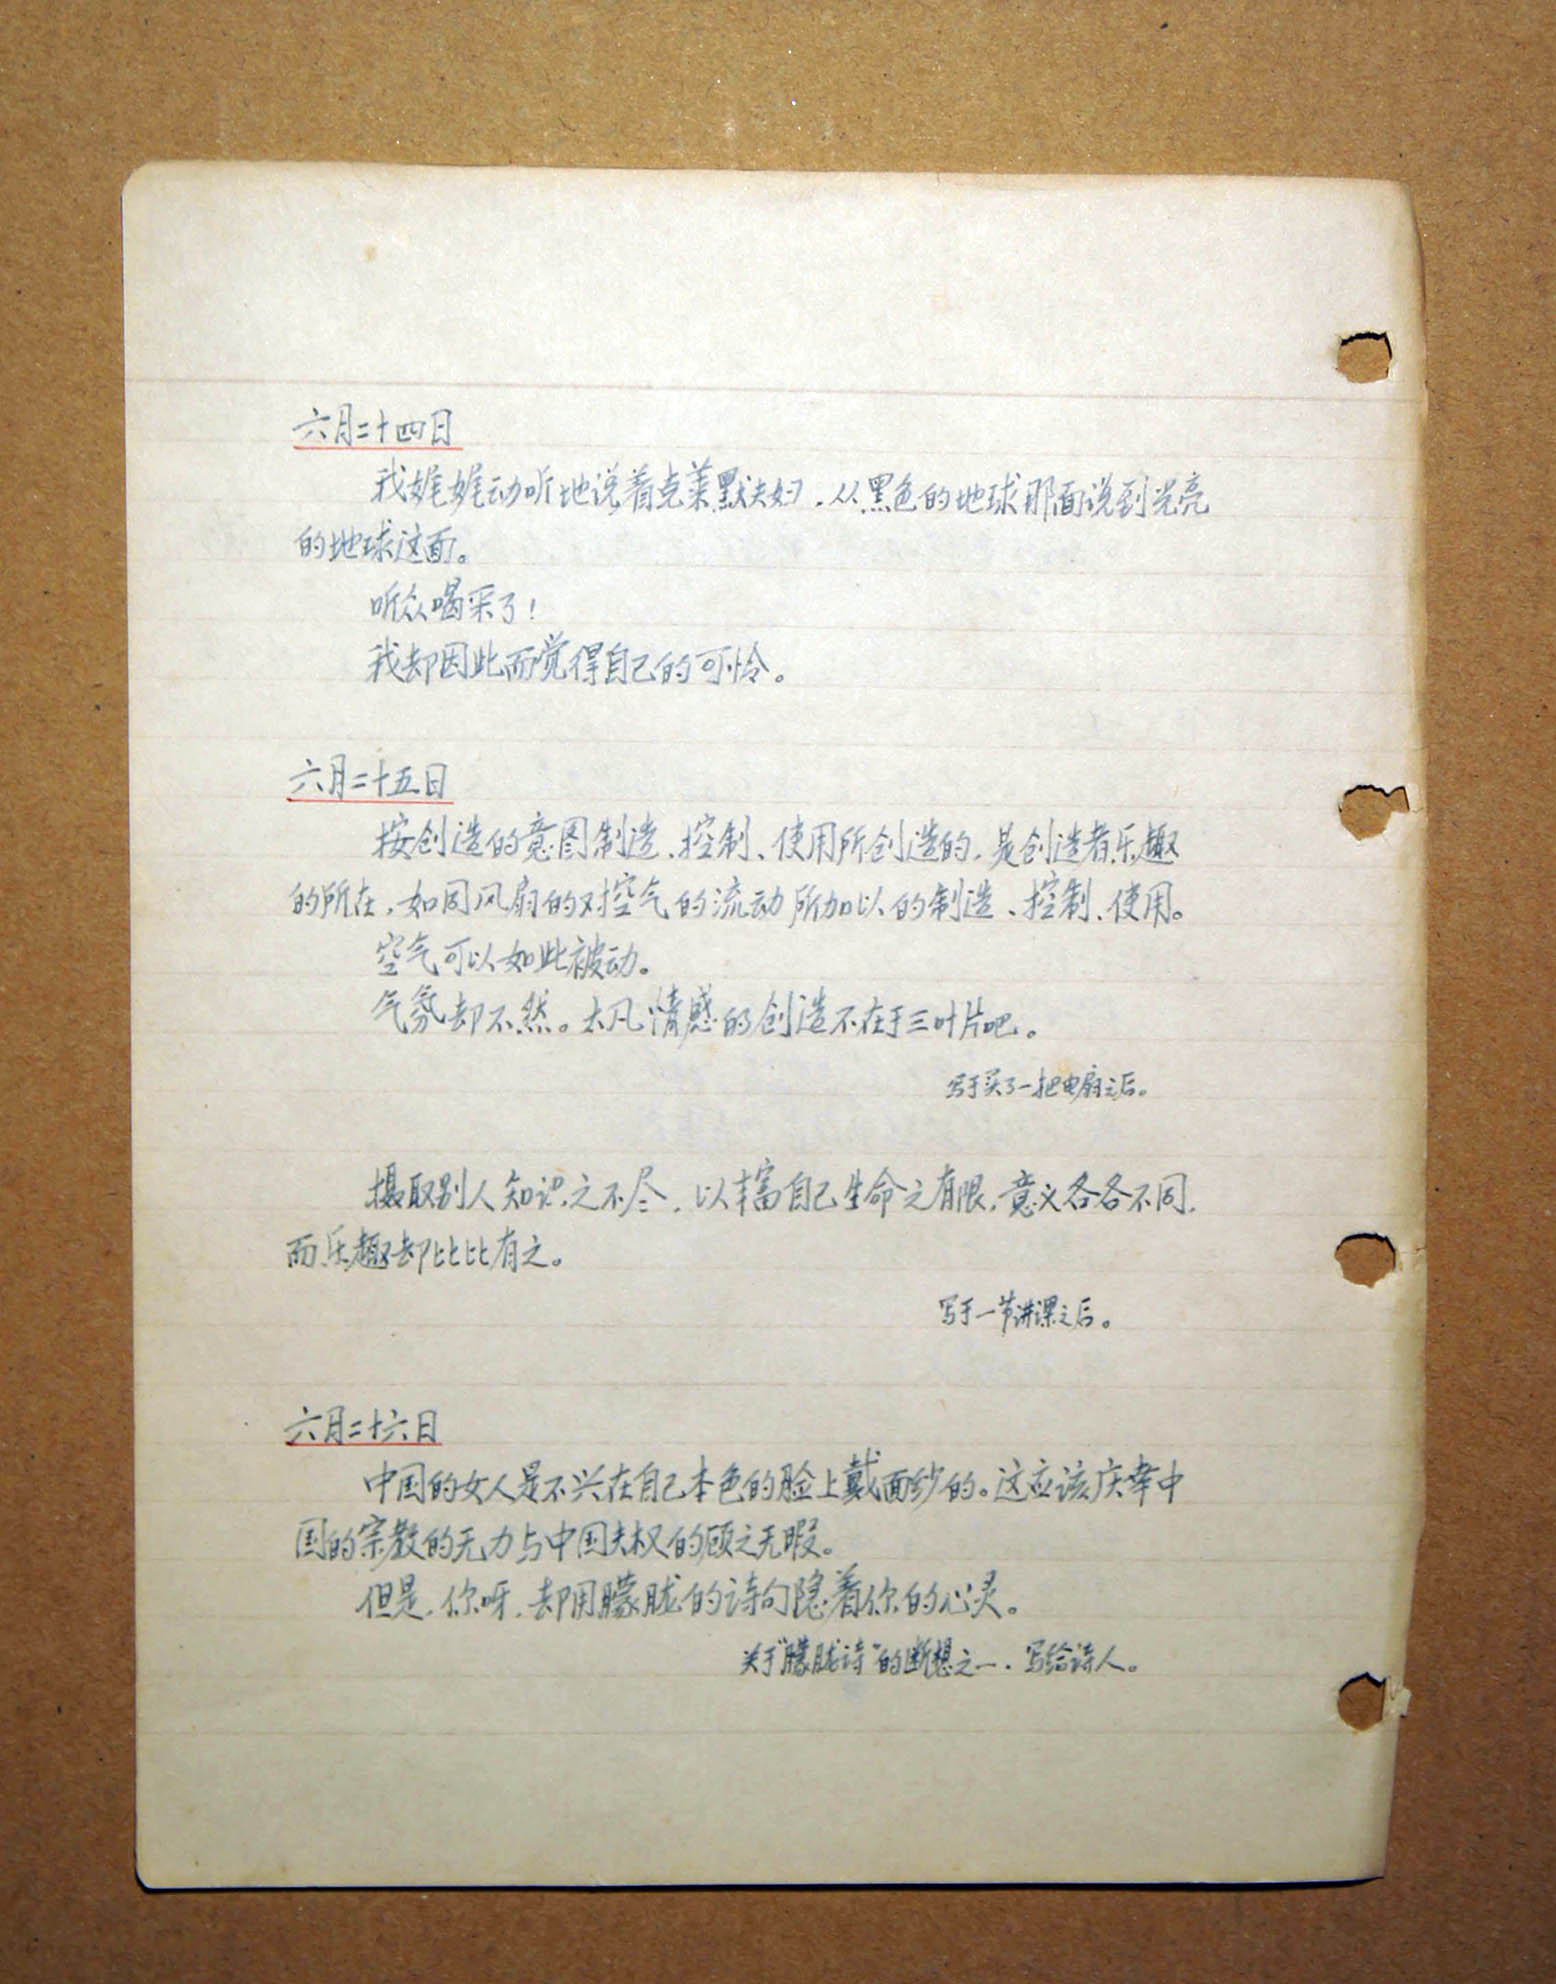 六月二十四日
我娓娓动听地说着克莱默夫妇，从黑色的地球那面说到光亮
的地球这面。
听众喝采了！
我却因此而觉得自己的可怜。
六月二十五日
按创造的意图制造、控制、使用所创造的，是创造者乐趣
的所在，如同风扇的对空气的流动所加以的制造、控制、使用。
空气可以如此被动。
气氛却不然。大凡情感的创造不在于三叶片吧。
写于买了一把电扇之后。
摄取别人知识之不尽，以丰富自己生命之有限，意义各各不同，
而乐趣却比比有之。
写于一节讲课之后。
六月二十六日
中国的女人是不兴在自己本色的脸上戴面纱的。这应该庆幸中
国的宗教的无力与中国夫权的顾之无暇。
但是，你呀，却用朦胧的诗句隐着你的心灵。
关于“朦胧诗”的断想之一，写给诗人。